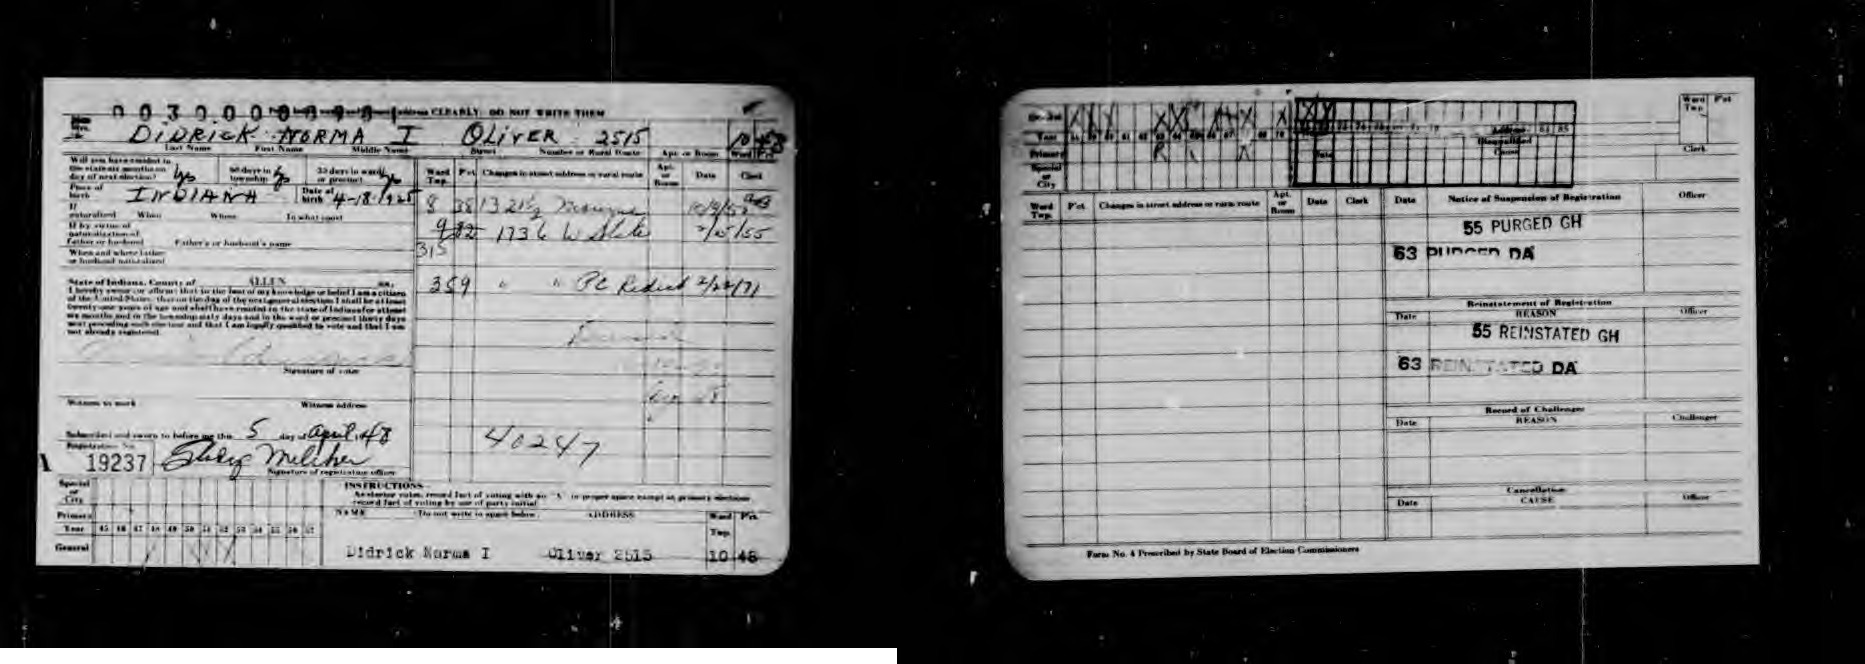 CLEARLY DO NOT WRITE THEM
DIDRICK NORMA I OLIVER 2515 10 48
Last Name First Name Middle Name Street Number or Rural Route Apt. or Room Ward Pct.
Will you have resided in
the state six months on
day of next election? yes 60 days in township? yes 30 days in ward or precinct? yes
Ward Twp. P'ct. Changes in street address or rural route Apt. or Room Date Clerk
Place of birth INDIANA Date of birth 4-18-1925
8 38 1321½
If naturalized When Where In what court
9 1736 W State 2/15/55
If by virtue of
naturalization of
Father or husband Father's or husband's name
315
When and where father
or husband naturalized
State of Indiana, County of ALLEN ss.
359 " " PC Redist 2/22/71
I hereby swear or affirm that to the best of my knowledge or belief I am a citizen
of the United States, that on the day of the next general election I shall be at least
twenty-one years of age and shall have resided in the state of Indiana for at least
six months and in the township sixty days and in the ward or precinct thirty days
next preceding such election and that I am legally qualified to vote and that I am
not already registered.
Signature of voter
Witness to mark Witness address
Subscribed and sworn to before me this 5 day of April, 48
40247
Registration No.
19237
Signature of registration officer
INSTRUCTIONS
As elector votes, record fact of voting with an "X" in proper space except in primary elections
record fact of voting by use of party initial
Special or City
Primary
Year 45 46 47 48 49 50 51 52 53 54 55 56 57
General
NAME Do not write in space below ADDRESS Ward Twp. P'ct.
Didrick Norma I Oliver 2515 10 48
General
Year
Primary R
Special or City
Disqualified
Date Cause
Ward Twp. P'ct.
Clerk
Ward Twp. P'ct. Changes in street address or rural route Apt. or Room Date Clerk
Date Notice of Suspension of Registration Officer
55 PURGED GH
63 PURGED DA
Reinstatement of Registration
Date REASON Officer
55 REINSTATED GH
63 REINSTATED DA
Record of Challenges
Date REASON Challenger
Cancellation
Date CAUSE Officer
Form No. 4 Prescribed by State Board of Election Commissioners